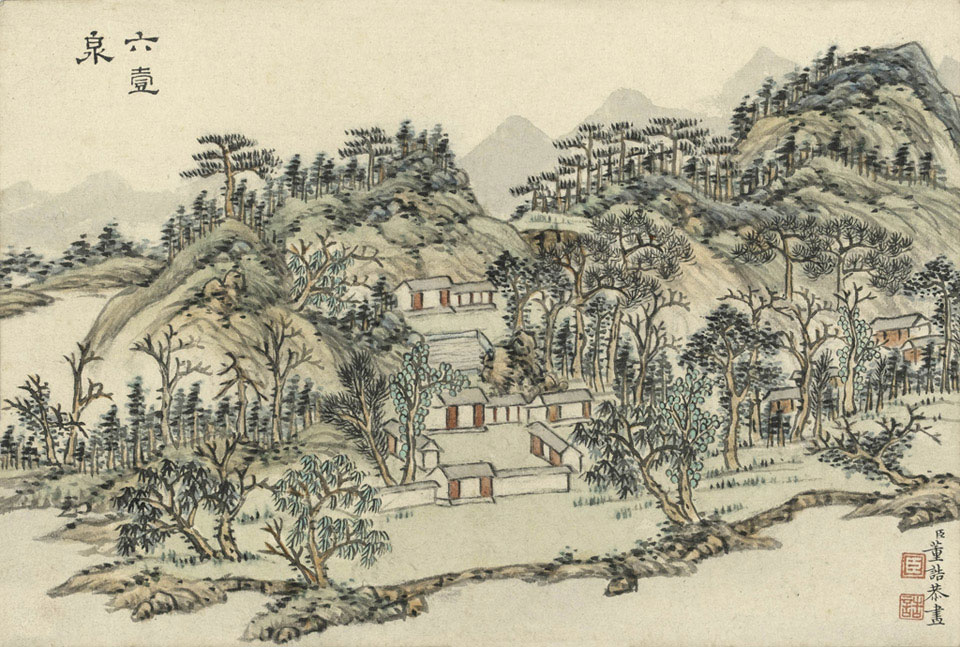 六壹
泉
臣董誥恭畫
臣
誥